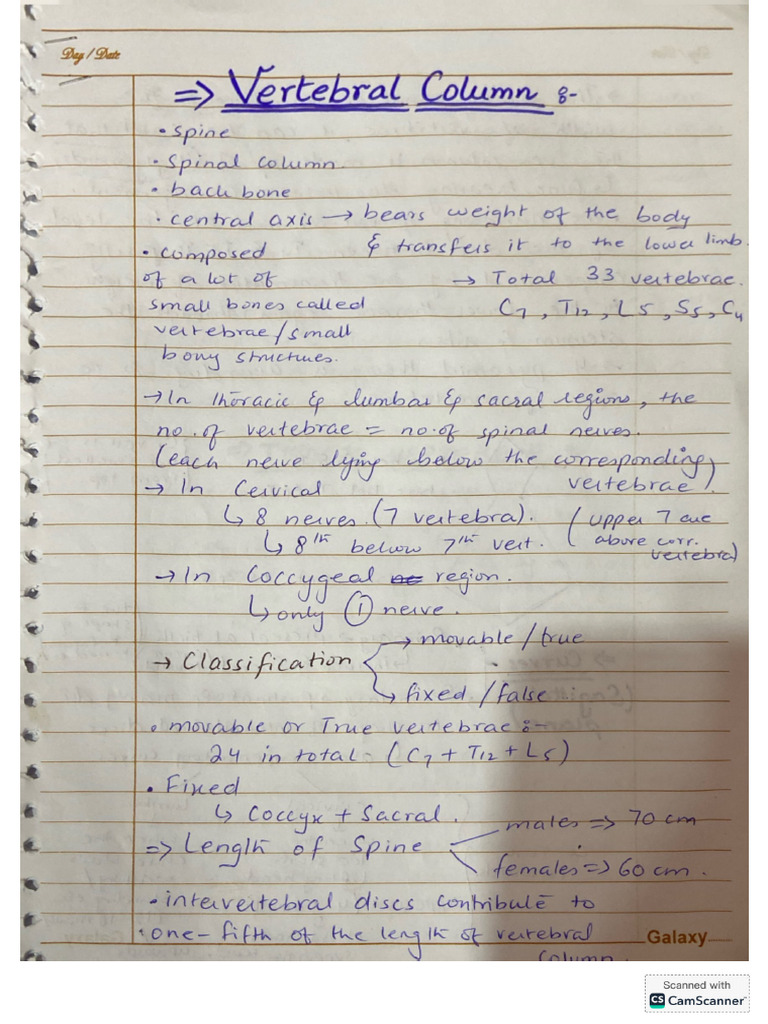 Day / Date
⇒ Vertebral Column :-
• Spine
• Spinal column.
• back bone
• central axis → bears weight of the body
& transfers it to the lower limb.
• composed
of a lot of
small bones called
vertebrae/small
bony structures.
→ Total 33 vertebrae.
C7, T12, L5, S5, C4
→ In thoracic & lumbar & sacral regions, the
no. of vertebrae = no. of spinal nerves.
(each nerve lying below the corresponding
vertebrae).
→ In Cervical
↳ 8 nerves. (7 vertebra).
↳ 8th below 7th vert.
(upper 7 are
above corr.
vertebra)
→ In Coccygeal region.
↳ only ① nerve.
→ Classification
→ movable/true
→ fixed/false
• movable or True vertebrae :-
24 in total - (C7 + T12 + L5)
• Fixed
↳ Coccyx + Sacral.
⇒ Length of Spine
males ⇒ 70 cm
females ⇒ 60 cm.
• intervertebral discs contribute to
• one-fifth of the length of vertebral
column.
Galaxy
Scanned with
CS CamScanner